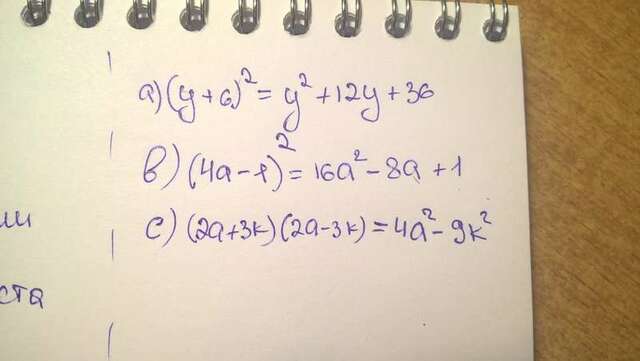 a) (y+6)² = y² + 12y + 36
b) (4a-1)² = 16a² - 8a + 1
c) (2a+3k)(2a-3k) = 4a² - 9k²
ли
ста